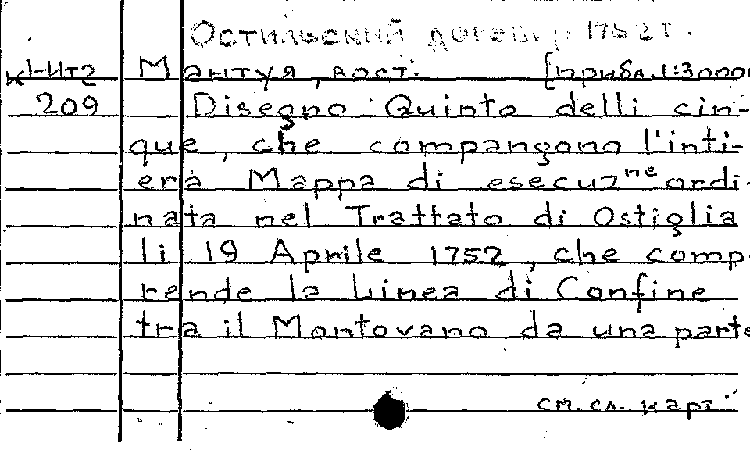 Остильский договор 1752 г.
К1-Ит2 Мантуя, вост. [прибл. 1:30000
209 Disegno Quinto delli cin-
que, che compangono l'inti-
era Mappa di esecuzne ordi-
nata nel Trattato di Ostiglia
li 19 Aprile 1752, che comp-
rende la Linea di Confine
tra il Montovano da una parte
см. сл. карт.